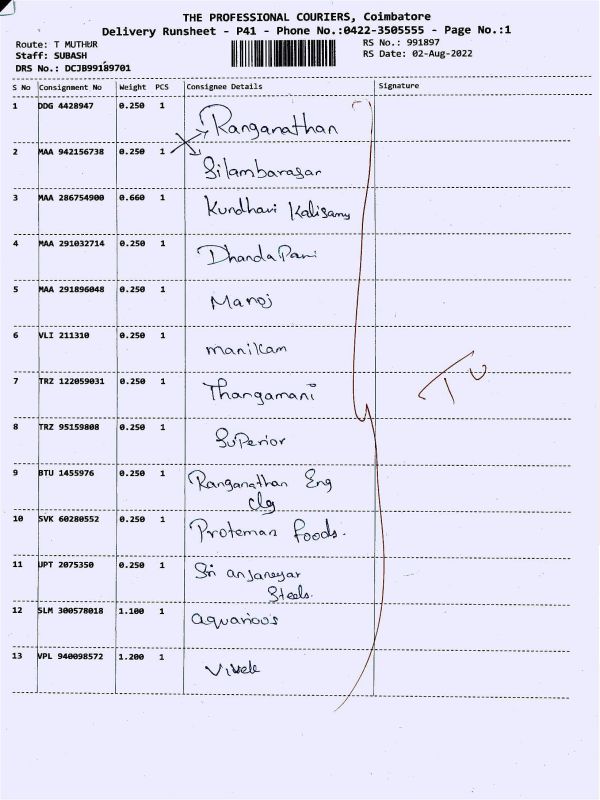 THE PROFESSIONAL COURIERS, Coimbatore
Delivery Runsheet - P41 - Phone No.:0422-3505555 - Page No.:1
Route: T MUTHUR
RS No.: 991897
Staff: SUBASH
RS Date: 02-Aug-2022
DRS No.: DCJB99189701
S No Consignment No Weight PCS Consignee Details Signature
1 DDG 4428947 0.250 1 Ranganathan
2 MAA 942156738 0.250 1 Silambarasar
3 MAA 286754900 0.660 1 Kundhavi Kalisamy
4 MAA 291032714 0.250 1 DhandaPani
5 MAA 291896048 0.250 1 Manoj
6 VLI 211310 0.250 1 manikam
7 TRZ 122059031 0.250 1 Thangamani
8 TRZ 95159808 0.250 1 SuPerior
9 BTU 1455976 0.250 1 Ranganathan Eng
clg
10 SVK 60280552 0.250 1 Proteman foods.
11 UPT 2075350 0.250 1 Sri anjaneyar
Steels.
12 SLM 300578018 1.100 1 aquarioos
13 VPL 940098572 1.200 1